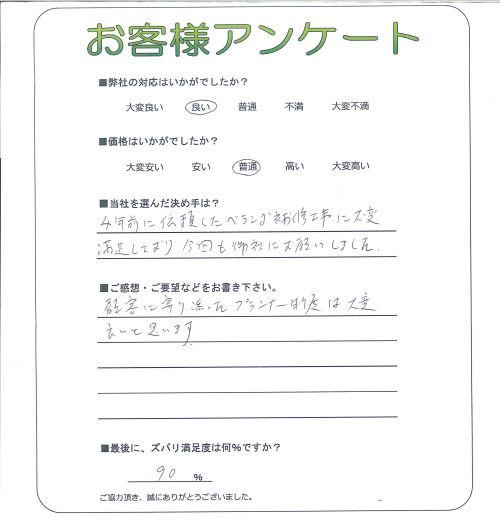 お客様アンケート
■弊社の対応はいかがでしたか？
大変良い 良い 普通 不満 大変不満
■価格はいかがでしたか？
大変安い 安い 普通 高い 大変高い
■当社を選んだ決め手は？
4年前に依頼したベランダ補修工事に大変
満足しており、今回も御社にお願いしました。
■ご感想・ご要望などをお書き下さい。
顧客に寄り添ったプランナー制度は大変
良いと思います
■最後に、ズバリ満足度は何％ですか？
90 ％
ご協力頂き、誠にありがとうございました。